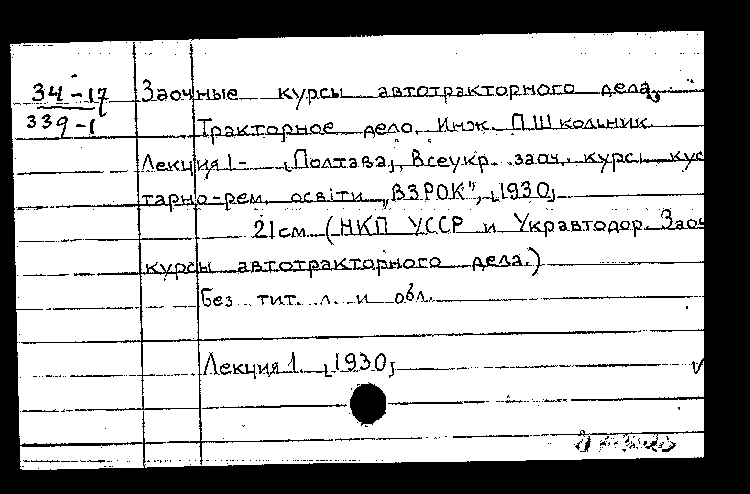 34-17 Заочные курсы автотракторного дела,
339-1 Тракторное дело. Инж. П.Школьник.
Лекция 1- [Полтава], Всеукр. заоч. курсы кус
тарно-рем. освіти „ВЗРОК", [1930]
21см (НКП УССР и Укравтодор. Заоч
курсы автотракторного дела.)
Без тит. л. и обл.
Лекция 1. [1930]